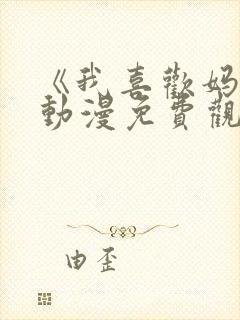 《我喜歡妈
動漫免費觀
由歪